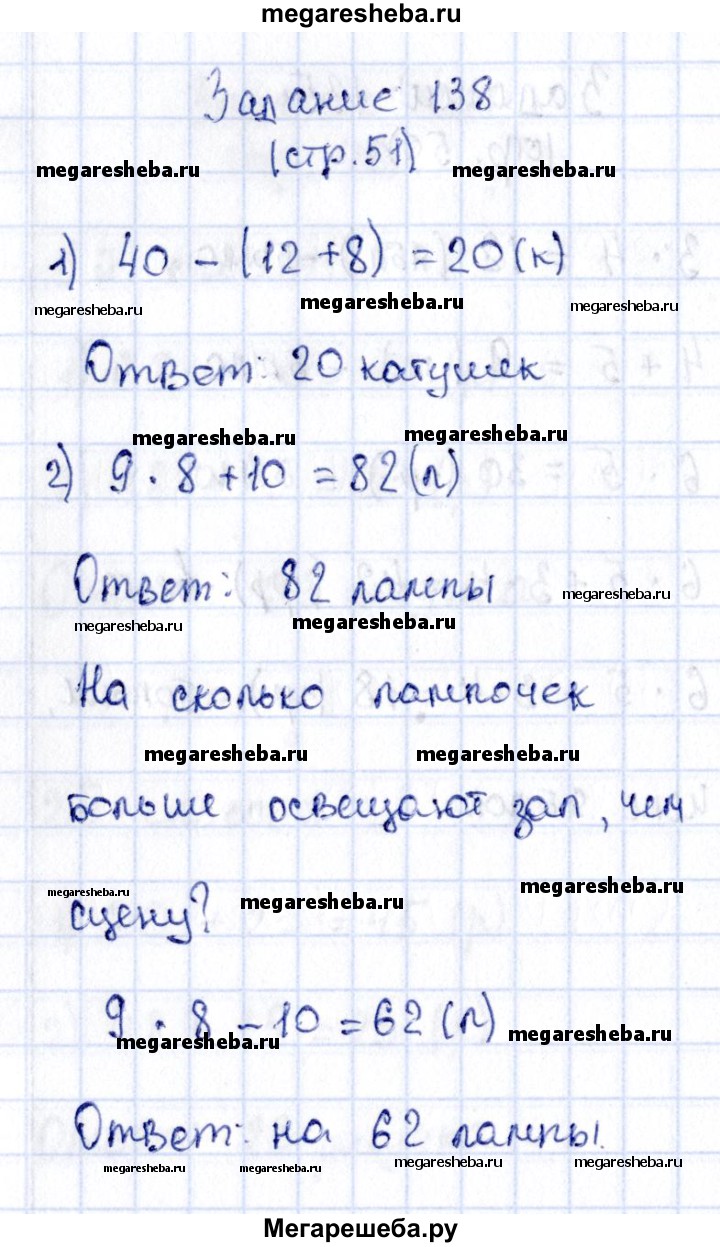 megaresheba.ru
Задание 138
(стр.51)
megaresheba.ru megaresheba.ru
1) 40 - (12+8) = 20 (к)
megaresheba.ru megaresheba.ru megaresheba.ru
Ответ: 20 катушек
megaresheba.ru megaresheba.ru
2) 9 · 8 + 10 = 82 (л)
Ответ: 82 лампы megaresheba.ru
megaresheba.ru megaresheba.ru
На сколько лампочек
megaresheba.ru megaresheba.ru
больше освещают зал, чем
megaresheba.ru megaresheba.ru megaresheba.ru
сцену?
9 · 8 - 10 = 62 (л)
megaresheba.ru megaresheba.ru
Ответ: на 62 лампы.
megaresheba.ru megaresheba.ru megaresheba.ru megaresheba.ru
Мегарешеба.ру